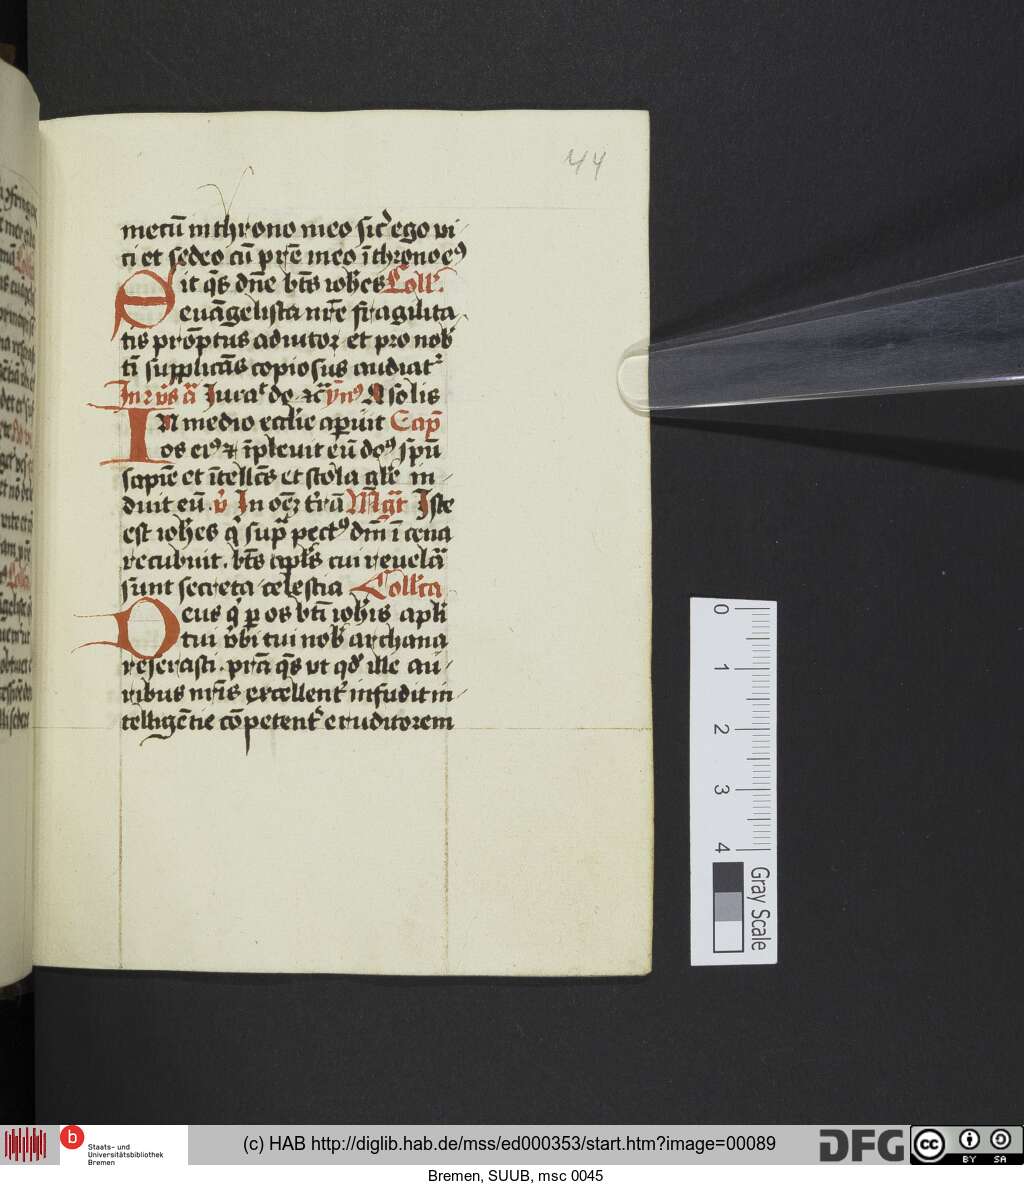 44
metū in throno meo sic̄ ego vi
ci et sedeo cū pr̄e meo ī throno eꝰ
Sit q̄s dn̄e bt̄s ioh̄es Coll̄.
euāgelista nr̄e fragilita
tis prōptus adiutor et pro nob̄
ti supplicās copiosus audiatr̄
In vꝰ ā Iura do ꝛc̄ ẏnꝰ A solis
In medio eccl̄ie aperuit Cap̄
os eiꝰ ⁊ īpleuit eū doꝰ sp̄u
sapiē et ītellc̄s et stola gl̄e in
duit eū. v̄ In oēꝫ tr̄ā Mgāt Iste
est ioh̄es q̄ sup̄ pectꝰ dn̄i ī cena
recubuit. bt̄s apl̄s cui reuelā
sunt secreta celestia Coll̄cā
Deus q̄ ꝑ os bt̄i ioh̄is apl̄i
tui v̄bi tui nob̄ archana
reserasti. pr̄ā q̄s vt qd̄ ille au
ribus nr̄is excellent̄ infudit in
telligētie cōpetent̄ eruditorem
0
1
2
3
4
Gray Scale
b
Staats- und
Universitätsbibliothek
Bremen
(c) HAB http://diglib.hab.de/mss/ed000353/start.htm?image=00089
DFG
cc
BY SA
Bremen, SUUB, msc 0045